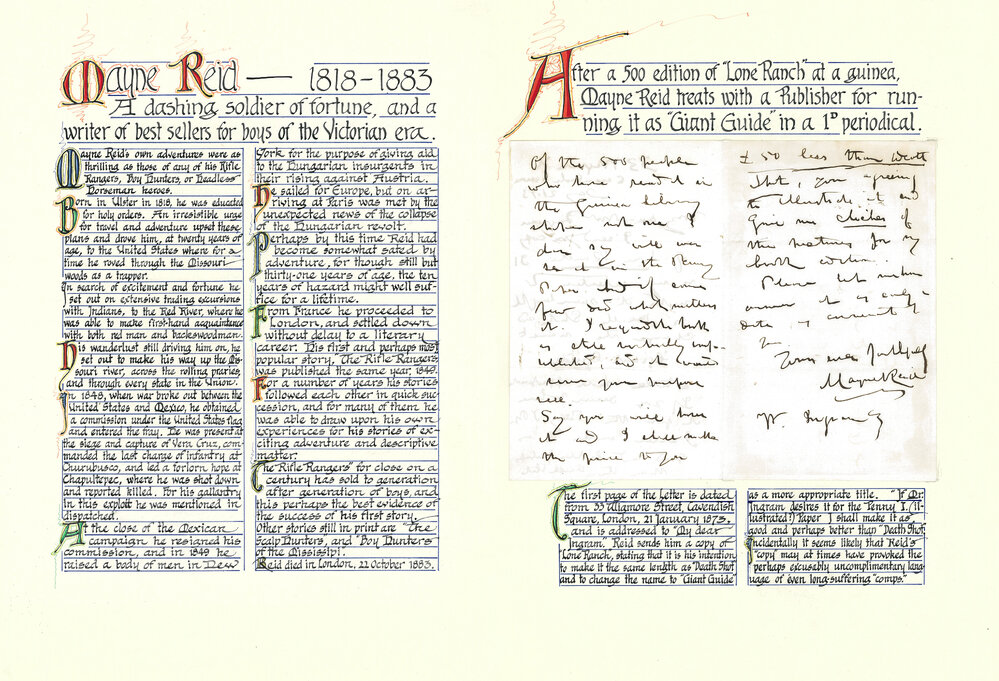 Mayne Reid — 1818-1883
A dashing soldier of fortune, and a
writer of best sellers for boys of the Victorian era.
Mayne Reid's own adventures were as
thrilling as those of any of his Rifle
Rangers, Boy Hunters, or Headless
Horseman heroes.
Born in Ulster in 1818, he was educated
for holy orders. An irresistible urge
for travel and adventure upset these
plans and drove him, at twenty years of
age, to the United States where for a
time he roved through the Missouri
woods as a trapper.
In search of excitement and fortune he
set out on extensive trading excursions
with Indians, to the Red River, where he
was able to make first-hand acquaintance
with both red man and backwoodsman.
His wanderlust still driving him on, he
set out to make his way up the Mis-
souri river, across the rolling praries,
and through every state in the Union.
In 1848, when war broke out between the
United States and Mexico, he obtained
a commission under the United States flag
and entered the fray. He was present at
the siege and capture of Vera Cruz, com-
manded the last charge of infantry at
Churubusco, and led a forlorn hope at
Chapultepec, where he was shot down
and reported killed. For his gallantry
in this exploit he was mentioned in
dispatched.
At the close of the Mexican
campaign he resigned his
commission, and in 1849 he
raised a body of men in New
York for the purpose of giving aid
to the Hungarian insurgents in
their rising against Austria.
He sailed for Europe, but on ar-
riving at Paris was met by the
unexpected news of the collapse
of the Hungarian revolt.
Perhaps by this time Reid had
become somewhat sated by
adventure, for though still but
thirty-one years of age, the ten
years of hazard might well suf-
fice for a lifetime.
From France he proceeded to
London, and settled down
without delay to a literary
career. His first and perhaps most
popular story, The Rifle Rangers,
was published the same year, 1849.
For a number of years his stories
followed each other in quick suc-
cession, and for many of them he
was able to draw upon his own
experiences for his stories of ex-
citing adventure and descriptive
matter.
The "Rifle Rangers" for close on a
century has sold to generation
after generation of boys, and
this perhaps the best evidence of
the success of his first story.
Other stories still in print are "The
Scalp Hunters, and "Boy Hunters
of the Missisipi".
Reid died in London, 22 October 1883.
After a 500 edition of "Lone Ranch" at a guinea,
Mayne Reid treats with a Publisher for run-
ning it as "Giant Guide" in a 1D periodical.
Of the 500 people
who have read it in
the Guinea library
edition not one I
dare say will ever
see it in the Penny
Paper
few did what matters
it. I
is still
Say you will have
it and I
the price to you
£50 less than Death
Shot, you agreeing
to
give me cliches of
the
Please let me
answer
Yours very faithfully
Mayne Reid
The first page of the Letter is dated
from 33 Ullamore Street, Cavendish
Square, London, 21 January 1873,
and is addressed to "My dear
Ingram." Reid sends him a copy of
"Lone Ranch", stating that it is his intention
to make it the same length as "Death Shot"
and to change the name to "Giant Guide"
as a more appropriate title. "If Mr.
Ingram desires it for the Penny I. (Il-
lustrated?) Paper I shall make it as
good and perhaps better than "Death Shot."
Incidentally it seems likely that Reid's
"copy" may at times have provoked the
perhaps excusably uncomplimentary lang-
uage of even long-suffering "comps."